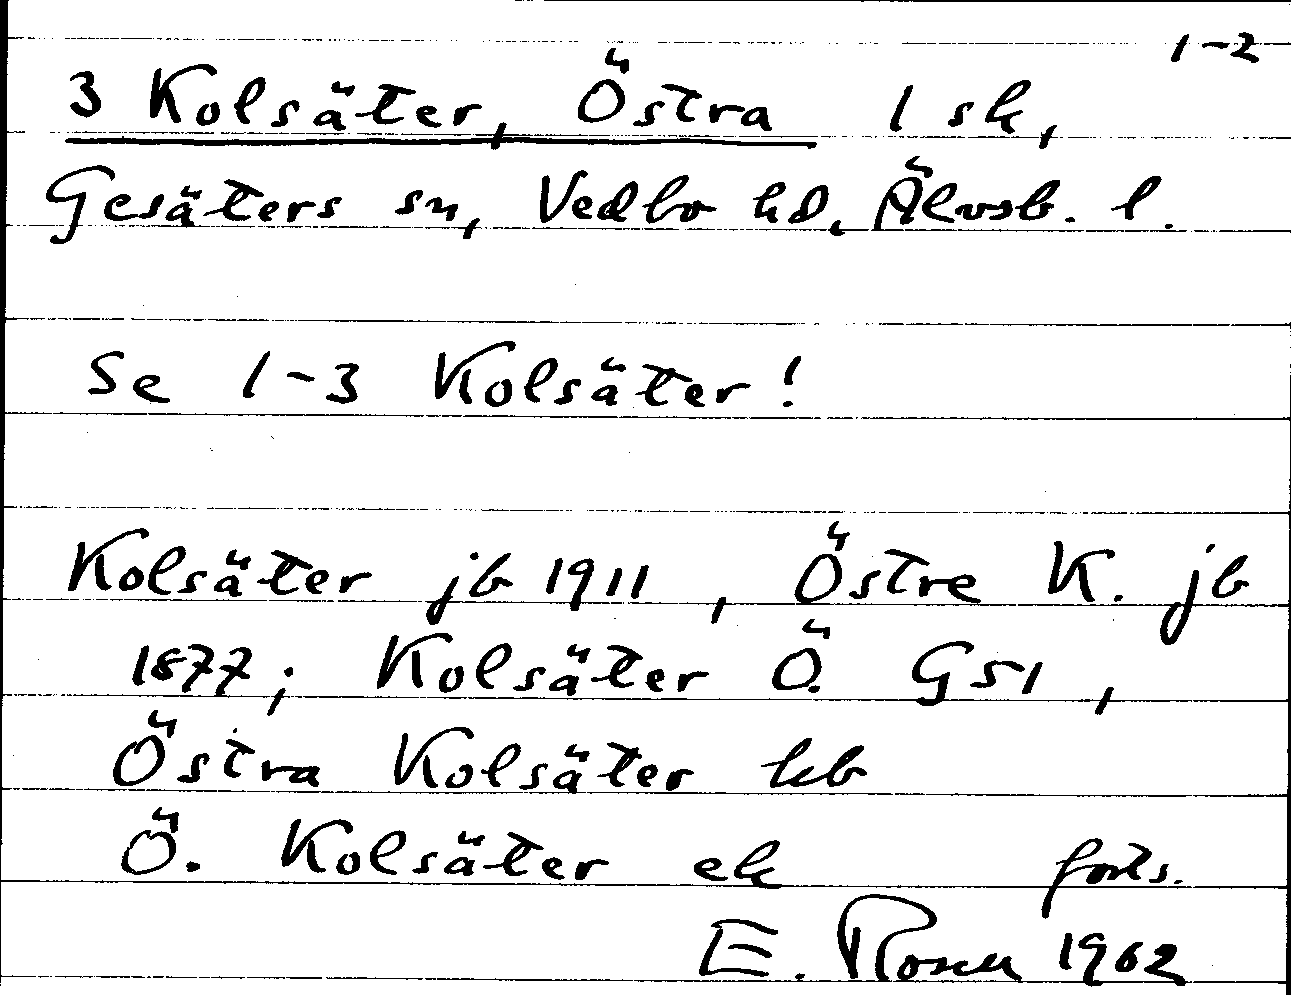 1-2
3 Kolsäter, Östra 1 sk,
Gesäters sn, Vedbo hd, Älvsb. l.
Se 1-3 Kolsäter!
Kolsäter jb 1911, Östre K. jb
1877; Kolsäter Ö. GS1,
Östra Kolsäter kb
Ö. Kolsäter ek forts.
E. Rosen 1962